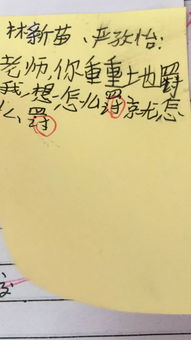 林新苗、严孜怡:
老师,你重重地罚
我,想怎么罚就怎
么罚